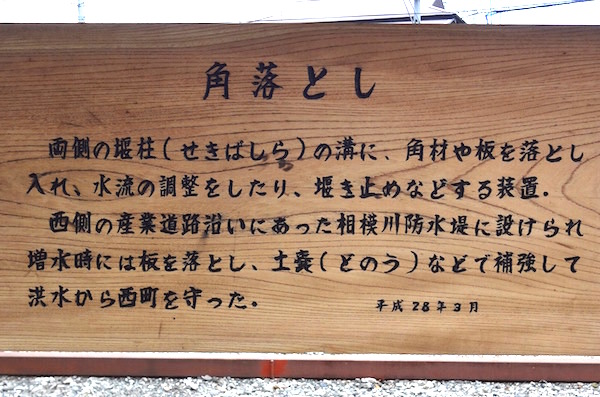 角落とし
両側の堰柱(せきばしら)の溝に、角材や板を落とし
入れ、水流の調整をしたり、堰き止めなどする装置.
西側の産業道路沿いにあった相模川防水堤に設けられ
増水時には板を落とし、土嚢(どのう)などで補強して
洪水から西町を守った。
平成28年3月